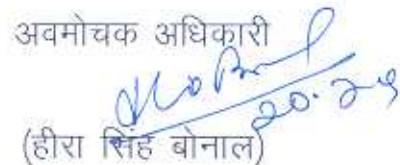 अवमोचक अधिकारी
(हीरा सिंह बोनाल)